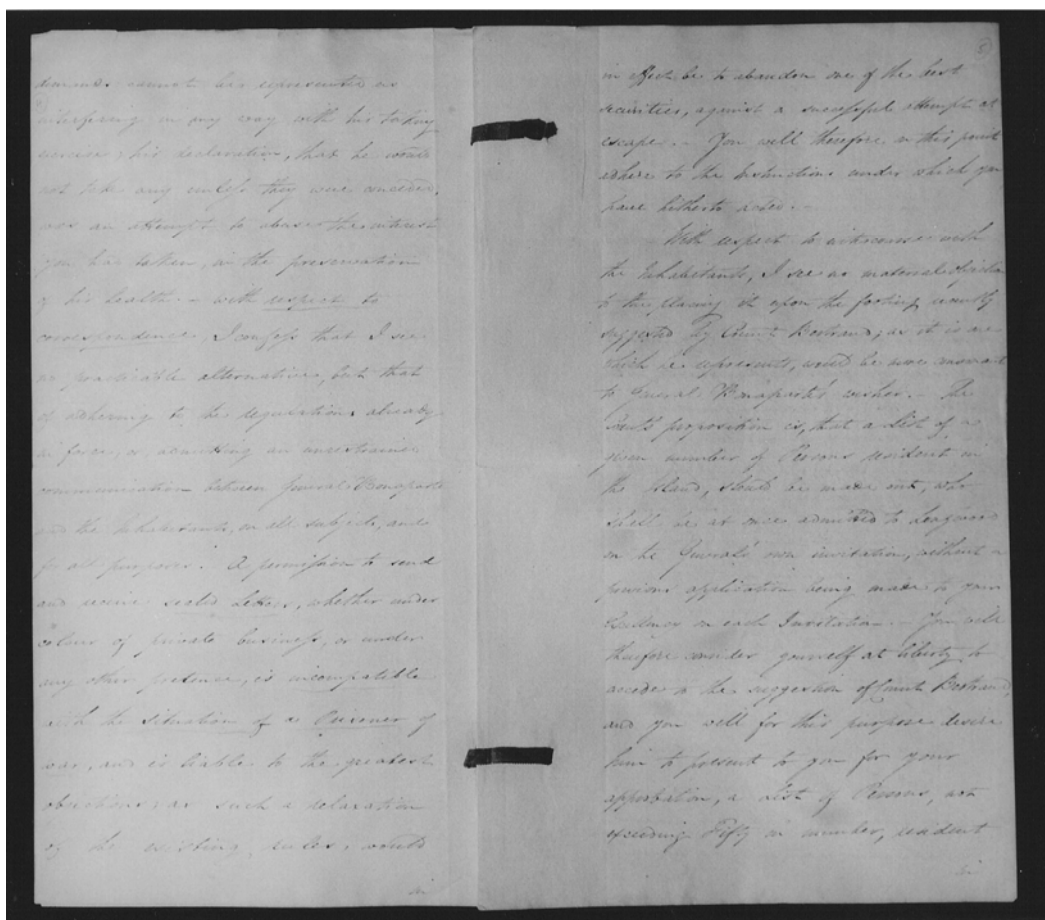 demands cannot be represented as
interfering in any way with his taking
exercise; his declaration, that he would
not take any unless they were conceded,
was an attempt to abuse the interest
you have taken, in the preservation
of his health. – with respect to
correspondence, I confess that I see
no practicable alternative, but that
of adhering to the regulations already
in force, or admitting an unrestrained
communication between General Bonaparte
and the Inhabitants, on all subjects, and
for all purposes. A permission to send
and receive sealed Letters, whether under
colour of private business, or under
any other pretence, is incompatible
with the situation of a Prisoner of
war, and is liable to the greatest
objections; as such a relaxation
of the existing rules, would
in
5
in effect be to abandon one of the best
securities, against a successful attempt at
escape. – You will therefore in this point
adhere to the Instructions under which you
have hitherto acted. –
With respect to intercourse with
the Inhabitants, I see no material objection
to the placing it upon the footing recently
suggested by Count Bertrand; as it is one
which he represents, would be more consonant
to General Bonaparte's wishes. – The
Count's proposition is, that a List of a
given number of Persons resident in
the Island, should be made out, who
shall be at once admitted to Longwood
on the General's own invitation, without a
previous application being made to your
Excellency on each Invitation. – You will
therefore consider yourself at liberty to
accede to the suggestion of Count Bertrand,
and you will for this purpose desire
him to present to you for your
approbation, a List of Persons, not
exceeding Fifty in number, resident
in